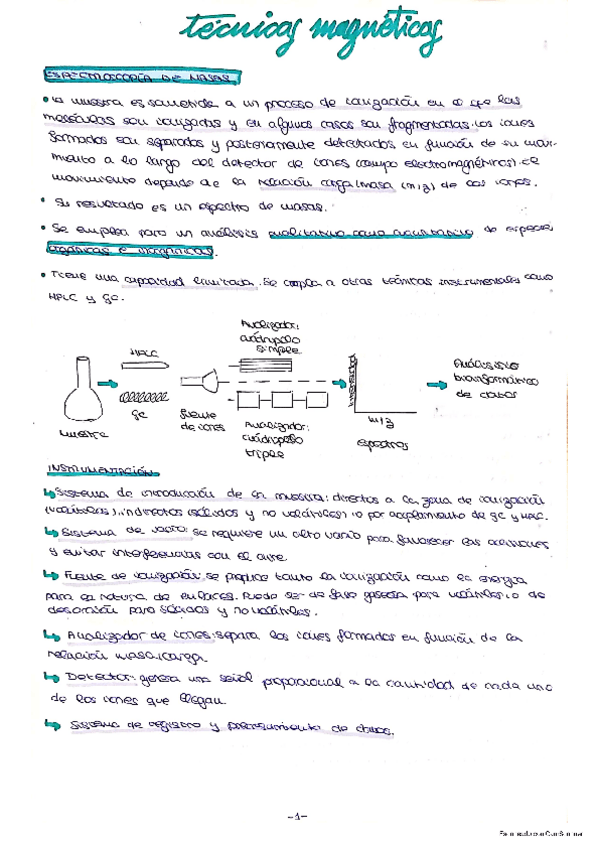 técnicas magnéticas
ESPECTROSCOPÍA DE MASAS
• La muestra es sometida a un proceso de ionización en el que las
moléculas son ionizadas y en algunos casos son fragmentadas. Los iones
formados son separados y posteriormente detectados en función de su movi-
miento a lo largo del detector de iones (campo electromagnético). El
movimiento depende de la relación carga/masa (m/z) de los iones.
• Su resultado es un espectro de masas.
• Se emplea para un análisis cualitativo como cuantitativo de especies
orgánicas e inorgánicas.
• Tiene una capacidad limitada. Se acopla a otras técnicas instrumentales como
HPLC y GC.
Analizador:
cuádrupolo
simple
HPLC
GC
muestra
fuente
de iones
Analizador:
cuádrupolo
triple
intensidad
m/z
espectros
Análisis
de datos
INSTRUMENTACIÓN
↳ Sistema de introducción de la muestra: directos a la zona de ionización
(volátiles), indirectos (sólidos y no volátiles) o por acoplamiento de GC y HPLC.
↳ Sistema de vacío: se requiere un alto vacío para favorecer las
y evitar interferencias con el aire.
↳ Fuente de ionización: se produce tanto la ionización como la energía
para la rotura de enlaces. Puede ser de fase gaseosa para volátiles o de
desorción para sólidos y no volátiles.
↳ Analizador de iones: separa los iones formados en función de la
relación masa/carga.
↳ Detector: genera una señal proporcional a la cantidad de cada uno
de los iones que llegan.
↳ Sistema de registro y procesamiento de datos.
-1-